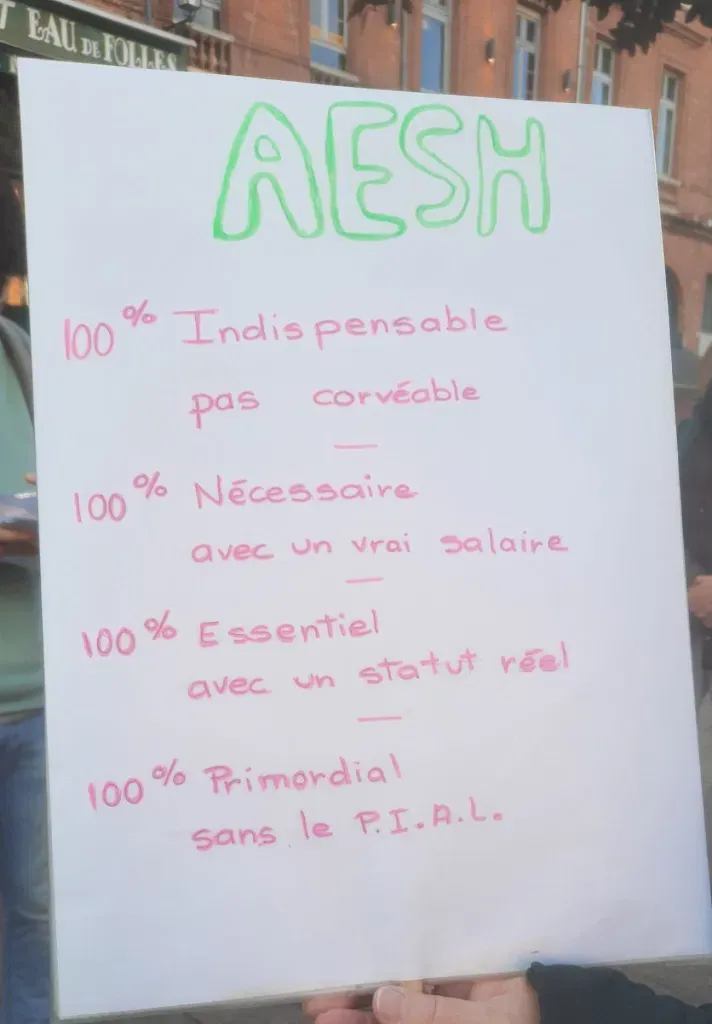 T EAU DE FOLLES
AESH
100% Indispensable
pas corvéable
100% Nécessaire
avec un vrai salaire
100% Essentiel
avec un statut réel
100% Primordial
sans le P.I.A.L.